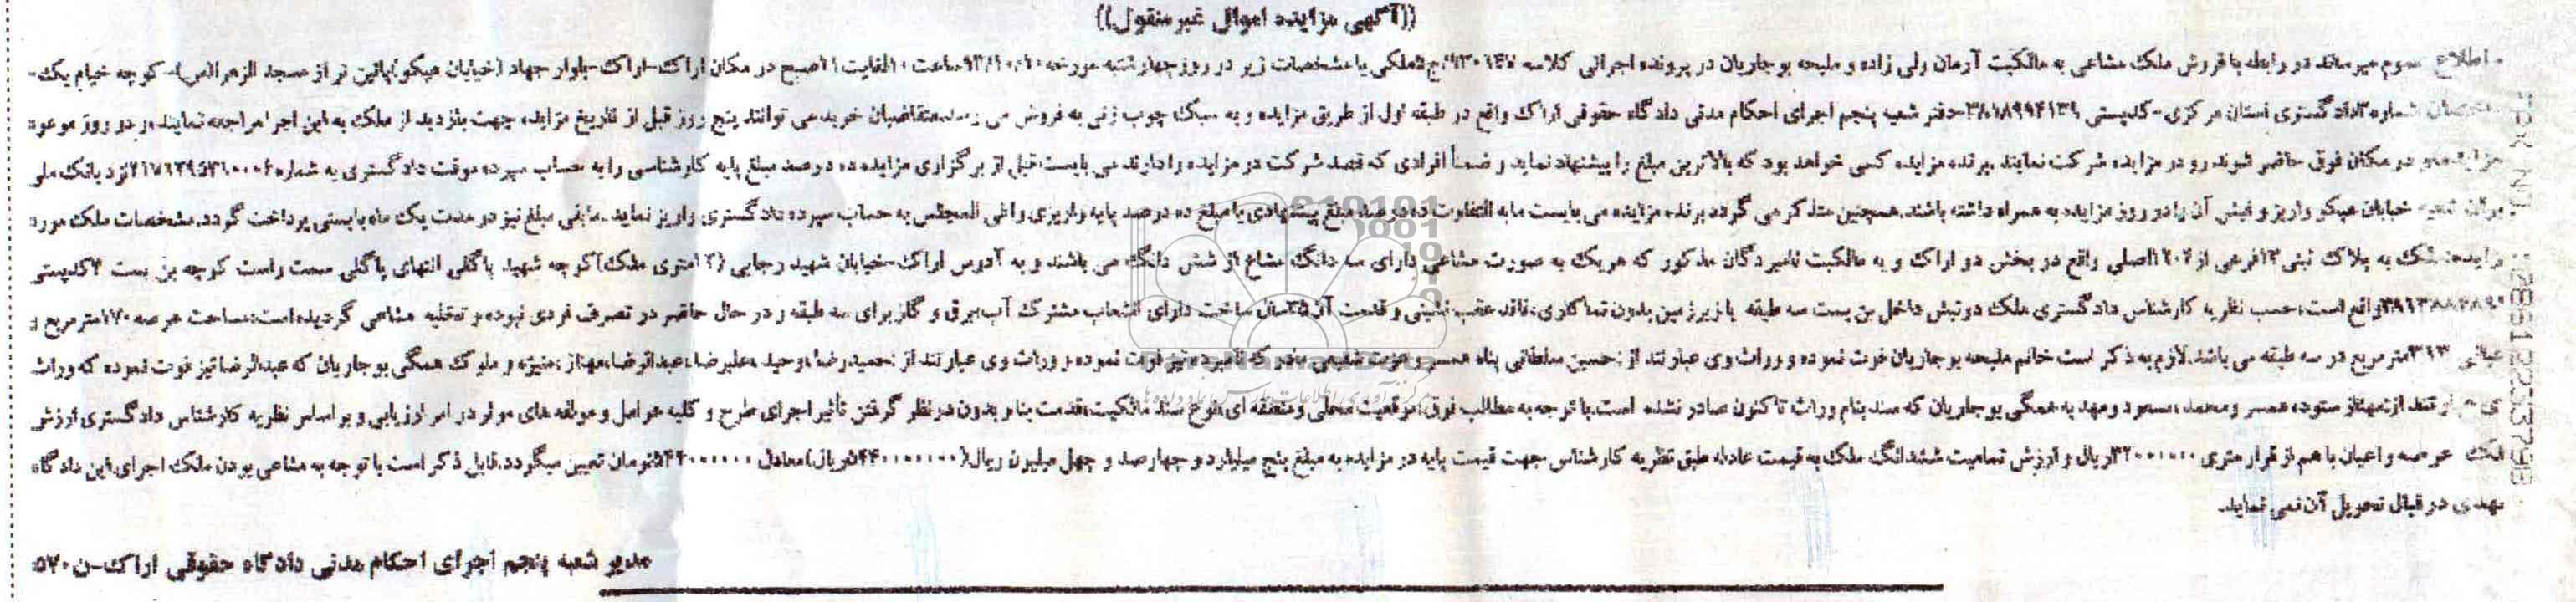 ((آگهی مزایده اموال غیرمنقول))
اطلاع عموم میرساند در رابطه با فروش ملک مشاعی به مالکیت آرمان ولی زاده و ملیحه بوجاریان در پرونده اجرائی کلاسه ملکی با مشخصات زیر در روز چهارشنبه مورخه ساعت ۱۰ الغایت ۱۱ صبح در مکان اراک-اراک-بلوار جهاد (خیابان هپکو) پائین تر از مسجد الزهرا(س)-کوچه خیام یک-
شماره دادگستری استان مرکزی-کدپستی دفتر شعبه پنجم اجرای احکام مدنی دادگاه حقوقی اراک واقع در طبقه اول از طریق مزایده و به سبک چوب زنی به فروش می رسد.متقاضیان خرید می توانند پنج روز قبل از تاریخ مزایده جهت بازدید از ملک به این اجرا مراجعه نمایند.و در روز موعود
مزایده در مکان فوق حاضر شوند و در مزایده شرکت نمایند .برنده مزایده کسی خواهد بود که بالاترین مبلغ را پیشنهاد نماید و ضمناً افرادی که قصد شرکت در مزایده را دارند می بایست قبل از برگزاری مزایده ده درصد مبلغ پایه کارشناسی را به حساب سپرده موقت دادگستری به شماره نزد بانک ملی
شعبه خیابان هپکو واریز و فیش آن را در روز مزایده به همراه داشته باشند.همچنین متذکر می گردد برنده مزایده می بایست مابه التفاوت ده درصد مبلغ پیشنهادی با مبلغ ده درصد پایه واریزی را فی المجلس به حساب سپرده دادگستری واریز نماید.مابقی مبلغ نیز در مدت یک ماه بایستی پرداخت گردد.مشخصات ملک مورد
مزایده: ملک به پلاک ثبتی فرعی از اصلی واقع در بخش دو اراک و به مالکیت نامبردگان مذکور که هریک به صورت مشاعی دارای سه دانگ مشاع از شش دانگ می باشند و به آدرس اراک-خیابان شهید رجایی (۱۲متری ملک)کوچه شهید پاگلی انتهای پاگلی سمت راست کوچه بن بست کدپستی
واقع است،حسب نظریه کارشناس دادگستری ملک دونبش داخل بن بست سه طبقه با زیرزمین بدون نماکاری،فاقد عقب نشینی و قدمت آن سال ساخت دارای انشعاب مشترک آب،برق و گاز برای سه طبقه و در حال حاضر در تصرف فردی نبوده و تخلیه مشاعی گردیده است،مساحت عرصه ۱۷۰مترمربع و
اعیانی متر مربع در سه طبقه می باشد.لازم به ذکر است خانم ملیحه بوجاریان فوت نموده و وراث وی عبارتند از :حسین سلطانی پناه همسر و عزت مادر که نامبرده نیز فوت نموده و وراث وی عبارتند از :حمیدرضا ،وحید ،علیرضا ،عبدالرضا،مهناز ،منیژه و ملوک همگی بوجاریان که عبدالرضا نیز فوت نموده که وراث
وی عبارتند از:مهناز ستوده همسر و محمد ،مسعود و مهدیه همگی بوجاریان که سند بنام وراث تاکنون صادر نشده است.با توجه به مطالب فوق،موقعیت محلی و منطقه ای،نوع سند مالکیت،قدمت بنا و بدون درنظر گرفتن تأثیر اجرای طرح و کلیه عوامل و مولفه های موثر در امر ارزیابی و بر اساس نظریه کارشناس دادگستری ارزش
ملک عرصه و اعیان با هم از قرار متری ریال و ارزش تمامیت ششدانگ ملک به قیمت عادله طبق نظریه کارشناس جهت قیمت پایه در مزایده به مبلغ پنج میلیارد و چهارصد و چهل میلیون ریال معادل تومان تعیین میگردد.قابل ذکر است با توجه به مشاعی بودن ملک اجرای این دادگاه
تعهدی در قبال تحویل آن نمی نماید.
مدیر شعبه پنجم اجرای احکام مدنی دادگاه حقوقی اراک-ن